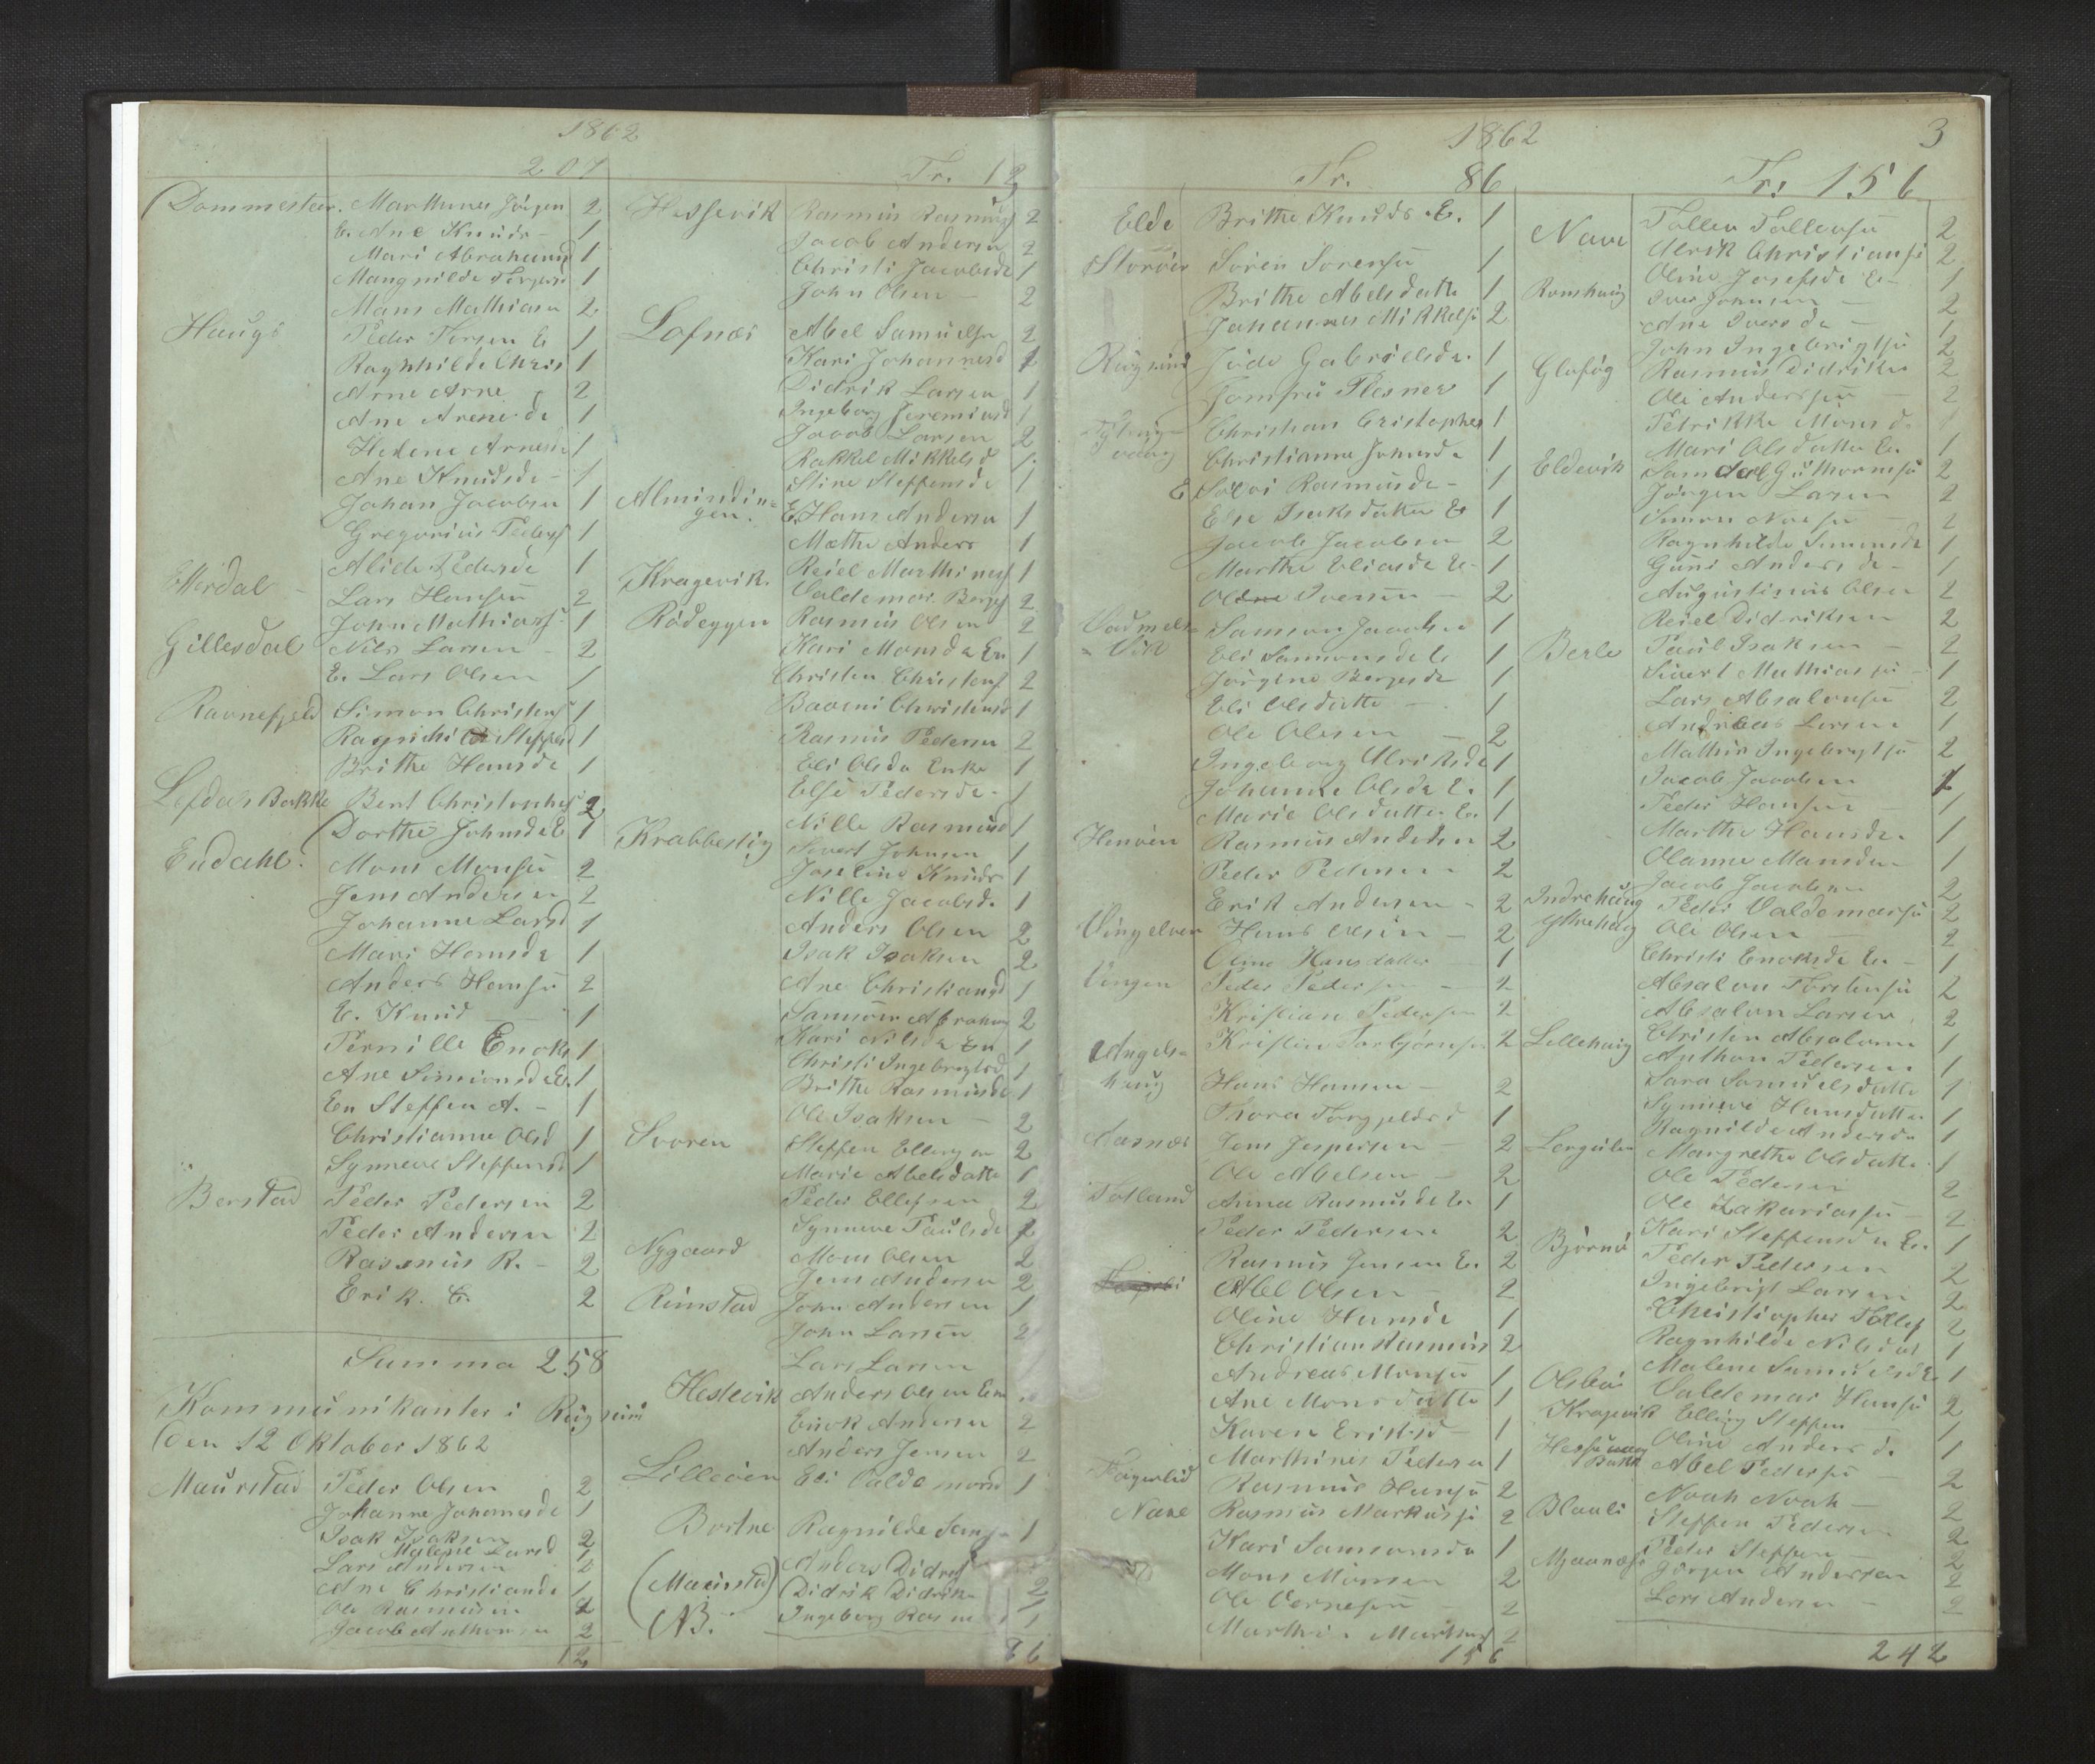 1862
207
Dommesteen. Marthinus Jörgen 2
E. Ane Knuds - 1
Mari Abrahamsd 1
Mangnilde Torgersd 1
Mans Mathiasen 2
Haugs Peder Torsen E 1
Ragnhilde Chris 1
Arne Arne 2
Ane Arnesde 1
Helene Arnesd 1
Ane Knudsde - 1
Johan Jacobsen 1
Gregorius Peders 1
Alide Pedersde 1
Lars Hansen 2
John Mathiass 1
Gillesdal Nils Larsen - 2
E. Lars Olsen 1
Ravnefjeld Simon Christens 1
Ragnhilde Steffensd 1
Brithe Hansde 1
Lefdals Bakke Bent Christophers 2
Dorthe Johnsde E 1
Endahl. Mons Monsen 2
Jens Andersen 2
Johanne Larsd 1
Mari Hansde 1
Anders Hansen 2
E. Knud - 1
Pernille Enoks 1
Ane Simonsde E. 1
En Steffen A. - 1
Christianne Olsd 1
Synneve Steffensd 1
Berstad Peder Pedersen 2
Peder Andersen 2
Rasmus R. - 2
Erik. E. 2
Summa 258
Kommunikanter i Rugsund
den 12 Oktober 1862
Maurstad Peder Olsen 2
Johanne Johannesde 1
Isak Isaksen 2
Malene Larsd 1
Lars Andersen 2
Ane Christiansde 1
Ole Rasmusen 2
Jacob Anthonsen 2
12
Tr. 12
Hessevik Rasmus Rasmus 2
Jacob Andersen 2
Christi Jacobsde 1
John Olsen - 2
Lofnæs Abel Samuelsen 2
Kari Johannesd 1
Didrik Larsen 1
Ingeborg Jeremiasd 1
Jacob Larsen 2
Rakkel Mikkelsd 1
Stine Steffensde 1
Almindin=
gen. E. Hans Andersen 1
Mæthe Anders 1
Kragevik. Reiel Marthines 1
Valdemar Berges 2
Rödeggen Rasmus Olsen 2
Kari Monsde En 1
Christen Christens 2
Christensd 1
Rasmus Pedersen 2
Eli Olsda Enke 1
Else Pedersde - 1
Krabbestig Nille Rasmusd 1
Sivert Johnsen 1
Joseline Knuds 1
Nille Jacobsd. 1
Anders Olsen 2
Isak Isaksen 2
Ane Christiansd 1
Samson Abraham 2
Kari Nilsda En 1
Christi Ingebrigtsd 1
Brithe Rasmusde 1
Ole Isaksen - 2
Svoren Steffen Ellingsen 2
Marie Abelsdatte 1
Peder Ellefsen 2
Synneve Paulsde 1
Nygaard Mons Olsen 2
Jens Andersen 2
Rimstad John Andersen 1
John Larsen 2
Lars Larsen
Hestevik Anders Olsen Enk
Enok Andersen 2
Anders Jensen 2
Lilleöen Eli Valdemarsd 1
Bortne Ragnilde Sams - 1
(Maurstad) Anders Didreks
Didrik Didriks 2
NB. Ingeborg Rasmus 1
86
1862 3
Tr. 86
Elde Brithe Knudsd. E. 1
Storöen Sören Sörensen 1
Brithe Abelsdatte 1
Johannes Mikkels 2
Rugsund Jöde Gabrielsde. 1
Jomfru Flesner 1
Christian Cristopher 1
Christianne Johnsde 1
E Solvi Rasmusde - 1
Else Isaksdatter E 1
Jacob Jacobsen 2
Marthe Eliasde E - 1
Iversen - 2
Vadmels=
vik Samson Jacobsen 1
Eli Samsonsde E 1
Jörgine Bergesde 1
Eli Olsdatte - 1
Ole Olsen - 2
Ingeborg Ulriksde 1
Johanne Olsde E. 1
Marie Olsdatter En 1
Henöen Rasmus Andersen 2
Peder Pedersen 2
Erik Andersen - 2
Vingelven Hans Olsen - 2
Oline Hansdatter - 1
Vingen Peder Pedersen - 2
Kristian Pedersen 2
Angels=
haug Kristen Torbjörnsen 2
Hans Hansen - 2
Thora Torgjeldsd 1
Aarnæs Jens Jespersen - 2
Ole Abelsen - 2
Totland Anna Rasmusde En 1
Peder Pedersen 2
Rasmus Jensen E. 2
Abel Olsen - 2
Oline Hansde 1
Christian Rasmus 2
Andreas Monsen 1
Ane Monsdatte 1
Karen Eriksd - 1
Marthines Pedersen 1
Fagerlid Rasmus Hansen 2
Nave Rasmus Markuss 2
Kari Samsonsde 1
Mons Monsen 2
Ole 2
Marthin Marthins 2
156
Tr: 156
Nave Tollev Tollevsen 2
Ulrik Christians 2
Oline Josefsde E - 1
Ramshaug Iver Johnsen - 2
Ane Iversde - 1
John Ingebrigtsen 2
Glofög Rasmus Didriks 2
Ole Anderssen - 2
Petrikke Monsd. 1
Mari Olsdatter En 1
Eldevik Samdal Guthormsen 2
Jörgen Larsen 2
Simon Noe - 2
Ragnhilde Simonsde 1
Guni Andersde - 1
Augustinus Olsen 2
Reiel Didriksen 2
Berle Paul Isaksen - 2
Sivert Mathiassen - 1
Lars Absalonsen 2
Andreas Larsen 1
Mathis Ingebrigtsen 2
Jacob Jacobsen 1
Peder Hansen - 1
Marthe Hansde. 1
Olanne Mansde - 1
Jacob Jacobsen 2
Indrehaug Peder Valdemarsen 2
Yttrehaug Ole Olsen - 2
Christi Enoksde En - 1
Absalon Torstensen 2
Absalon Larsen 2
Lillehaug Christen Absalonsen 1
Anthon Pedersen 1
Sara Samuelsdatte 1
Synneve Hansdatter 1
Ragnilde Andersde 1
Lergulen Margrethe Olsdatte 1
Ole Pedersen 2
Ole Zakariassen - 2
Björnö Kari Steffensde En. 1
Peder Pedersen 2
Ingebrigt Larsen 2
Christopher Tollef 2
Ragnhilde Nilsdat 1
Malene Samuelsde 1
Valdemar Hansen 2
Kragevik Elling Steffen - 1
Oline Andersde 1
Abel Pedersen - 2
Blaali Noah Noah - 2
Steffen Pedersen 2
Peder Steffen - 2
Jörgen Andersen 2
Lars Andersen - 2
242